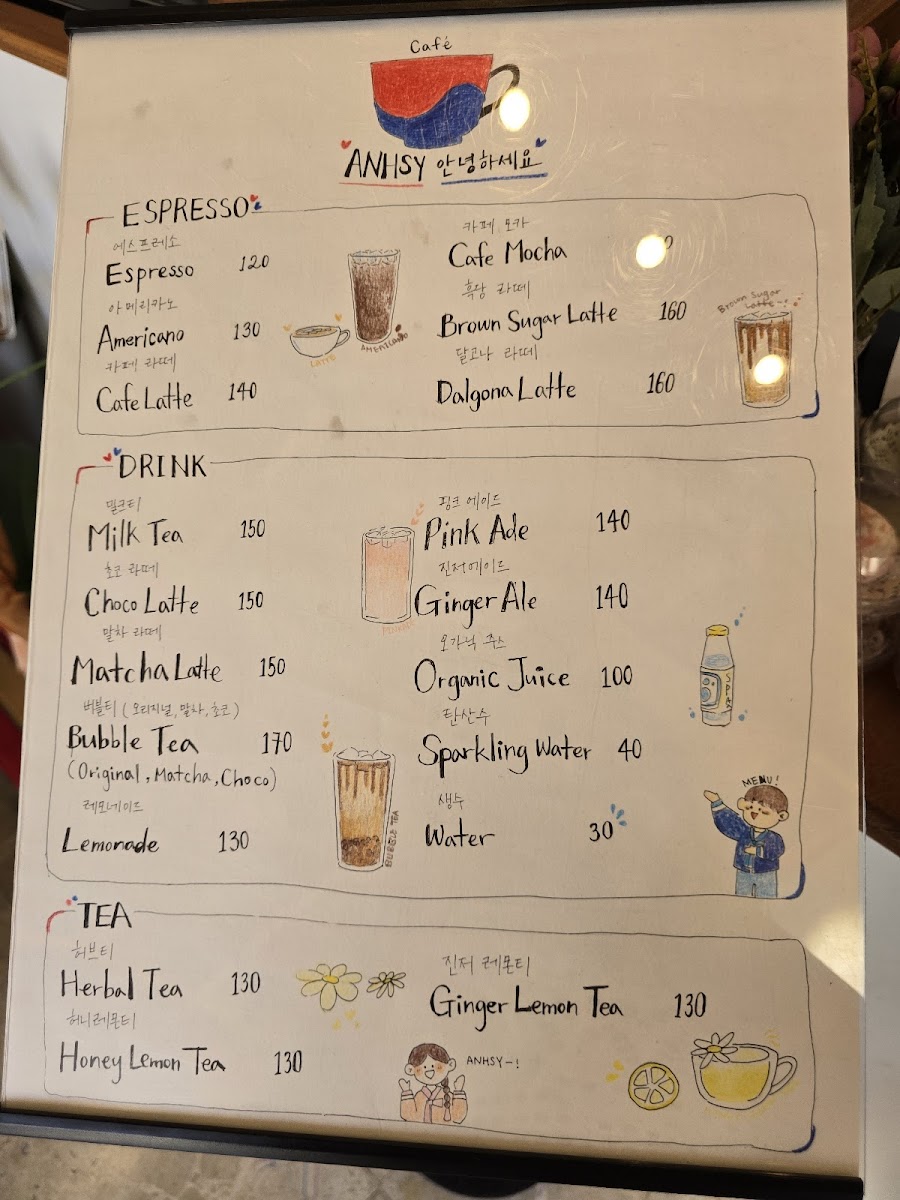 Café
ANHSY 안녕하세요
ESPRESSO
에스프레소
Espresso 120
아메리카노
Americano 130
카페 라떼
Cafe Latte 140
LATTE
AMERICANO
카페 모카
Cafe Mocha
흑당 라떼
Brown Sugar Latte 160
달고나 라떼
Dalgona Latte 160
Brown Sugar
Latte~!
DRINK
밀크티
Milk Tea 150
초코 라떼
Choco Latte 150
말차 라떼
Matcha Latte 150
버블티 (오리지널, 말차, 초코)
Bubble Tea 170
(Original, Matcha, Choco)
레모네이드
Lemonade 130
BUBBLE TEA
핑크 에이드
Pink Ade 140
진저에이드
Ginger Ale 140
오가닉 주스
Organic Juice 100
탄산수
Sparkling Water 40
생수
Water 30
MENU!
TEA
허브티
Herbal Tea 130
허니레몬티
Honey Lemon Tea 130
진저 레몬티
Ginger Lemon Tea 130
ANHSY~!